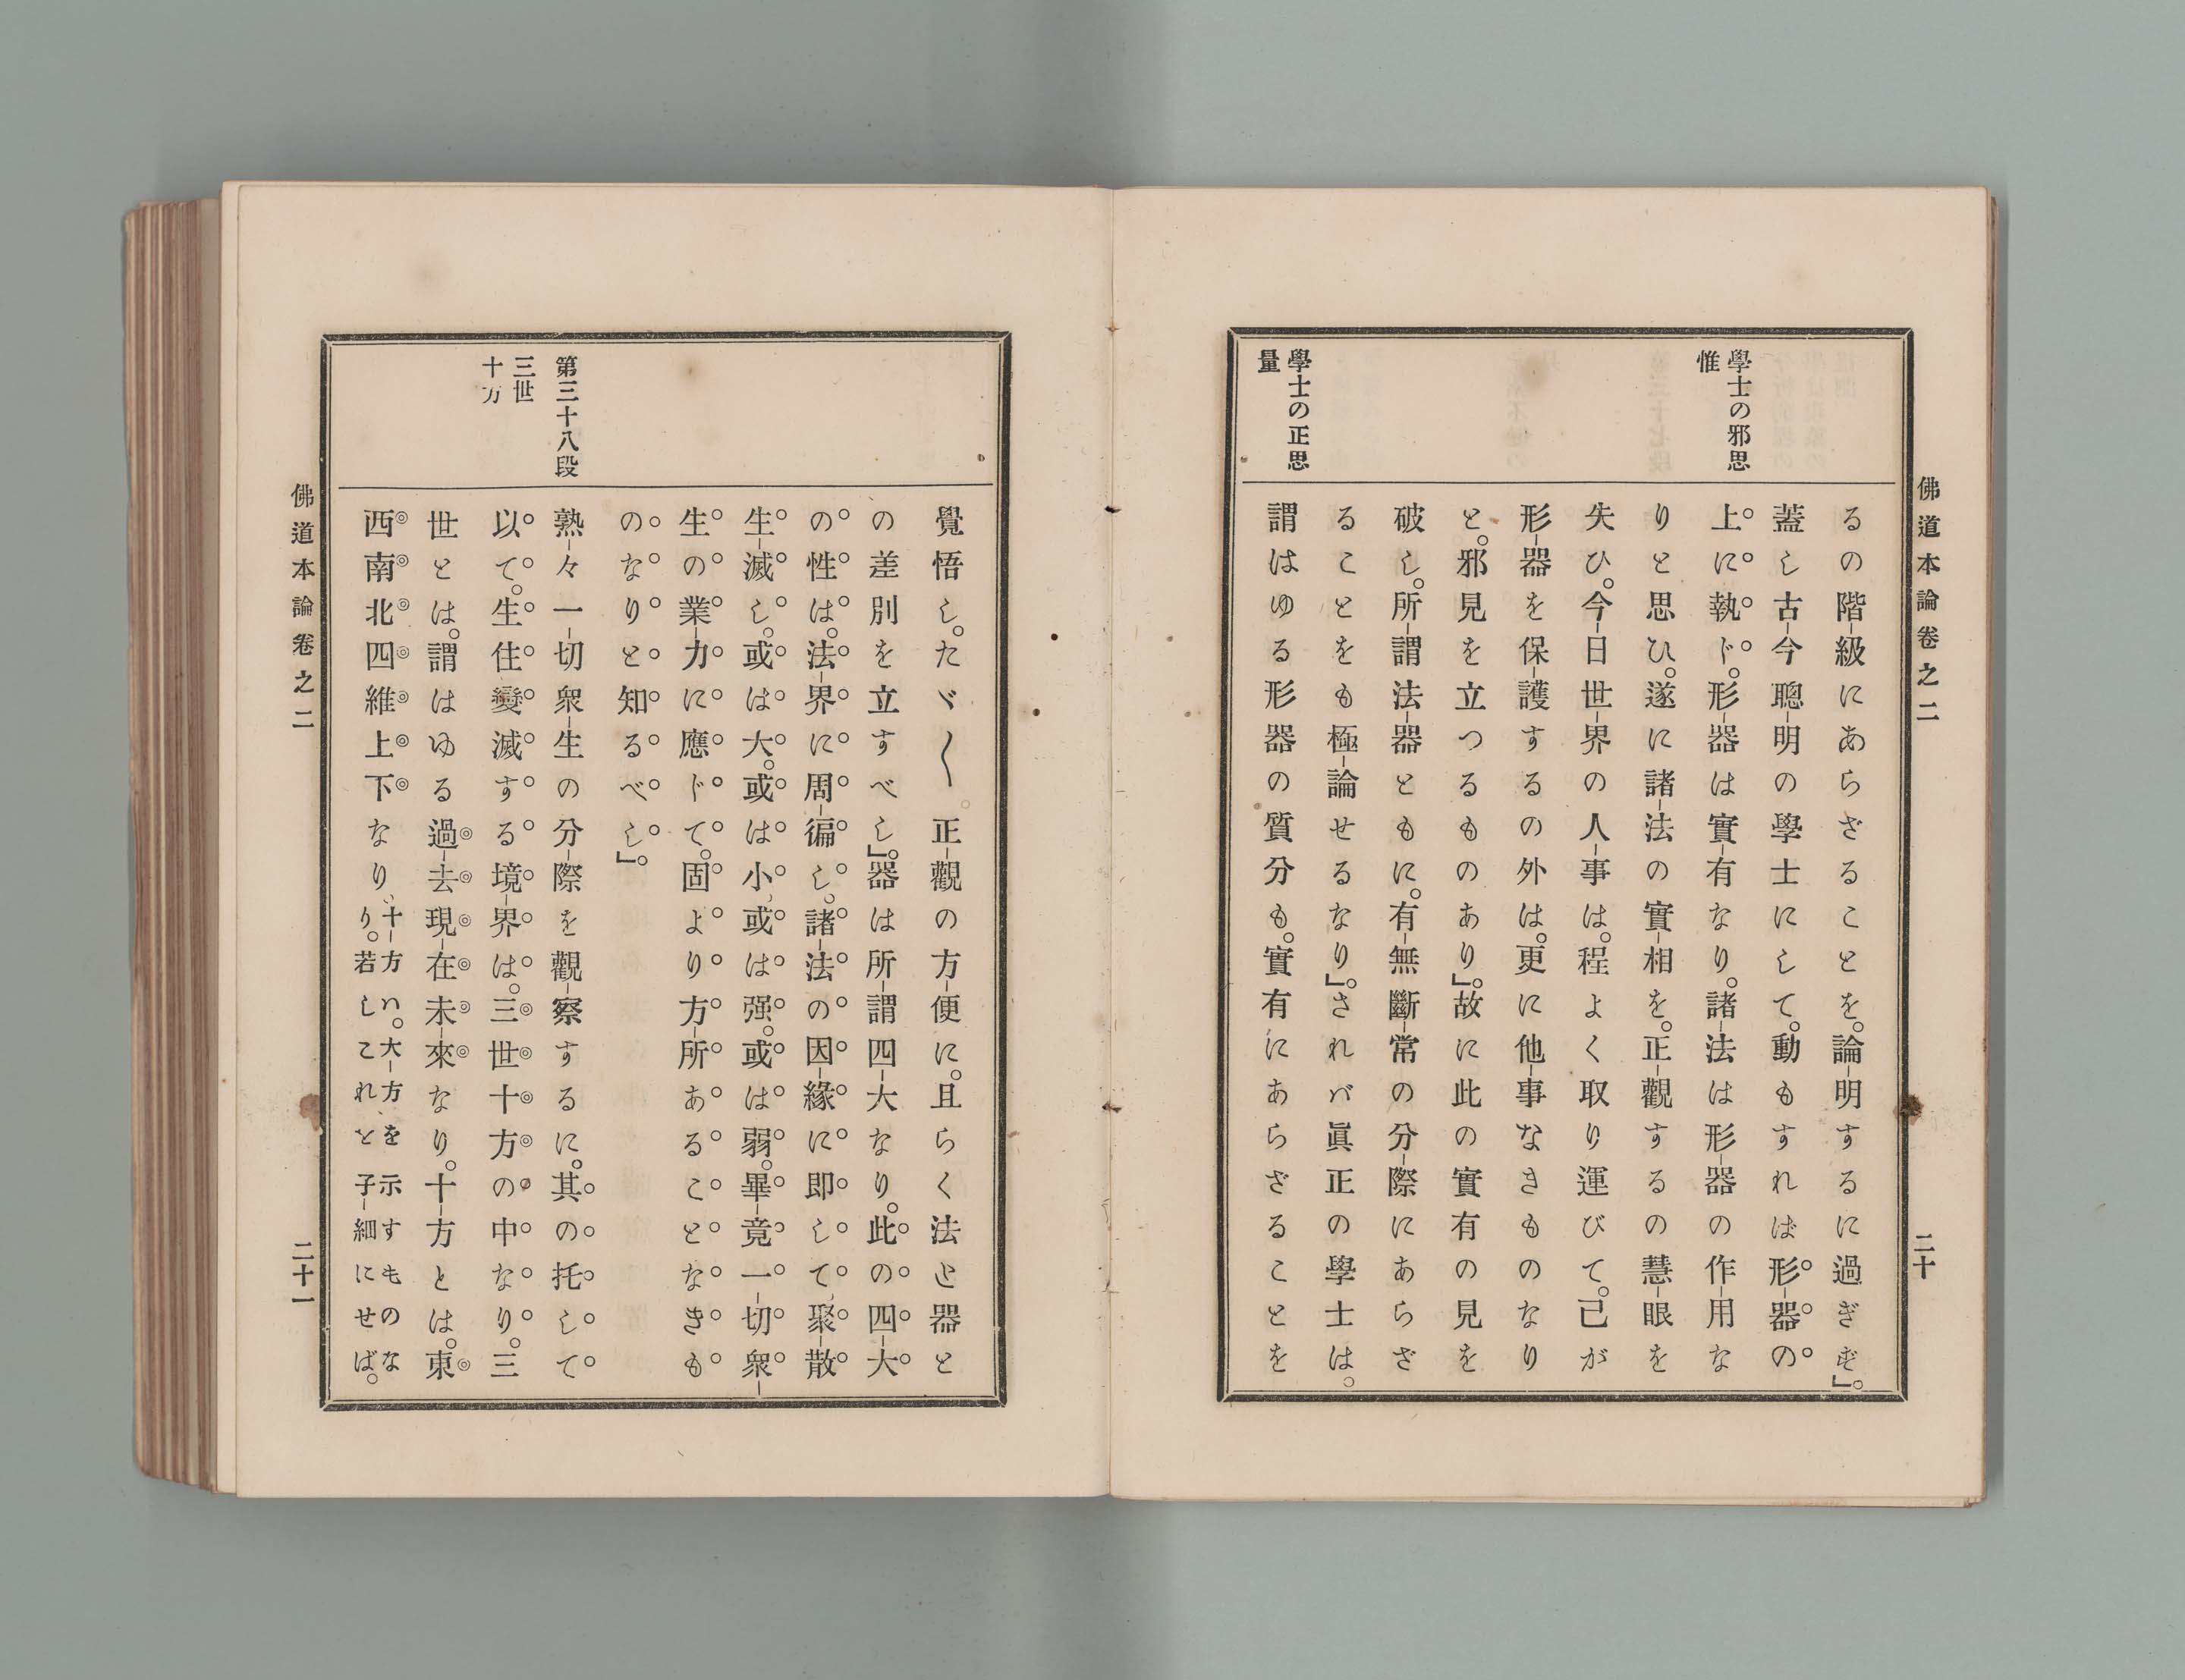 佛道本論卷之二
二十
學士の邪思
惟
學士の正思
量
るの階級にあらざることを。論明するに過ぎず」。
蓋し古今聰明の學士にして。動もすれば形器の
上に執ド。形器は實有なり。諸法は形器の作用な
りと思ひ。遂に諸法の實相を。正觀するの慧眼を
失ひ。今日世界の人事は。程よく取り運びて。己が
形器を保護するの外は。更に他事なきものなり
と。邪見を立つるものあり」。故に此の實有の見を
破し。所謂法器ともに。有無斷常の分際にあらざ
ることをも極論せるなり」。されバ眞正の學士は。
謂はゆる形器の質分も。實有にあらざることを
第三十八段
三世
十方
覺悟し。たゞ〱。正觀の方便に。且らく法と器と
の差別を立すべし」。器は所謂四大なり。此の四大
の性は。法界に周徧し。諸法の因緣に即して、聚散
生滅し。或は大。或は小、或は强。或は弱。畢竟一切衆
生の業力に應ドて。固より方所あることなきも
のなりと知るべし」。
熟々一切衆生の分際を觀察するに。其の托して
以て。生住變滅する境界は。三世十方の中なり。三
世とは。謂はゆる過去現在未來なり。十方とは。東
西南北四維上下なり、
十方ハ。大方を示すものな
り。若しこれと子細にせば。
佛道本論卷之二
二十一